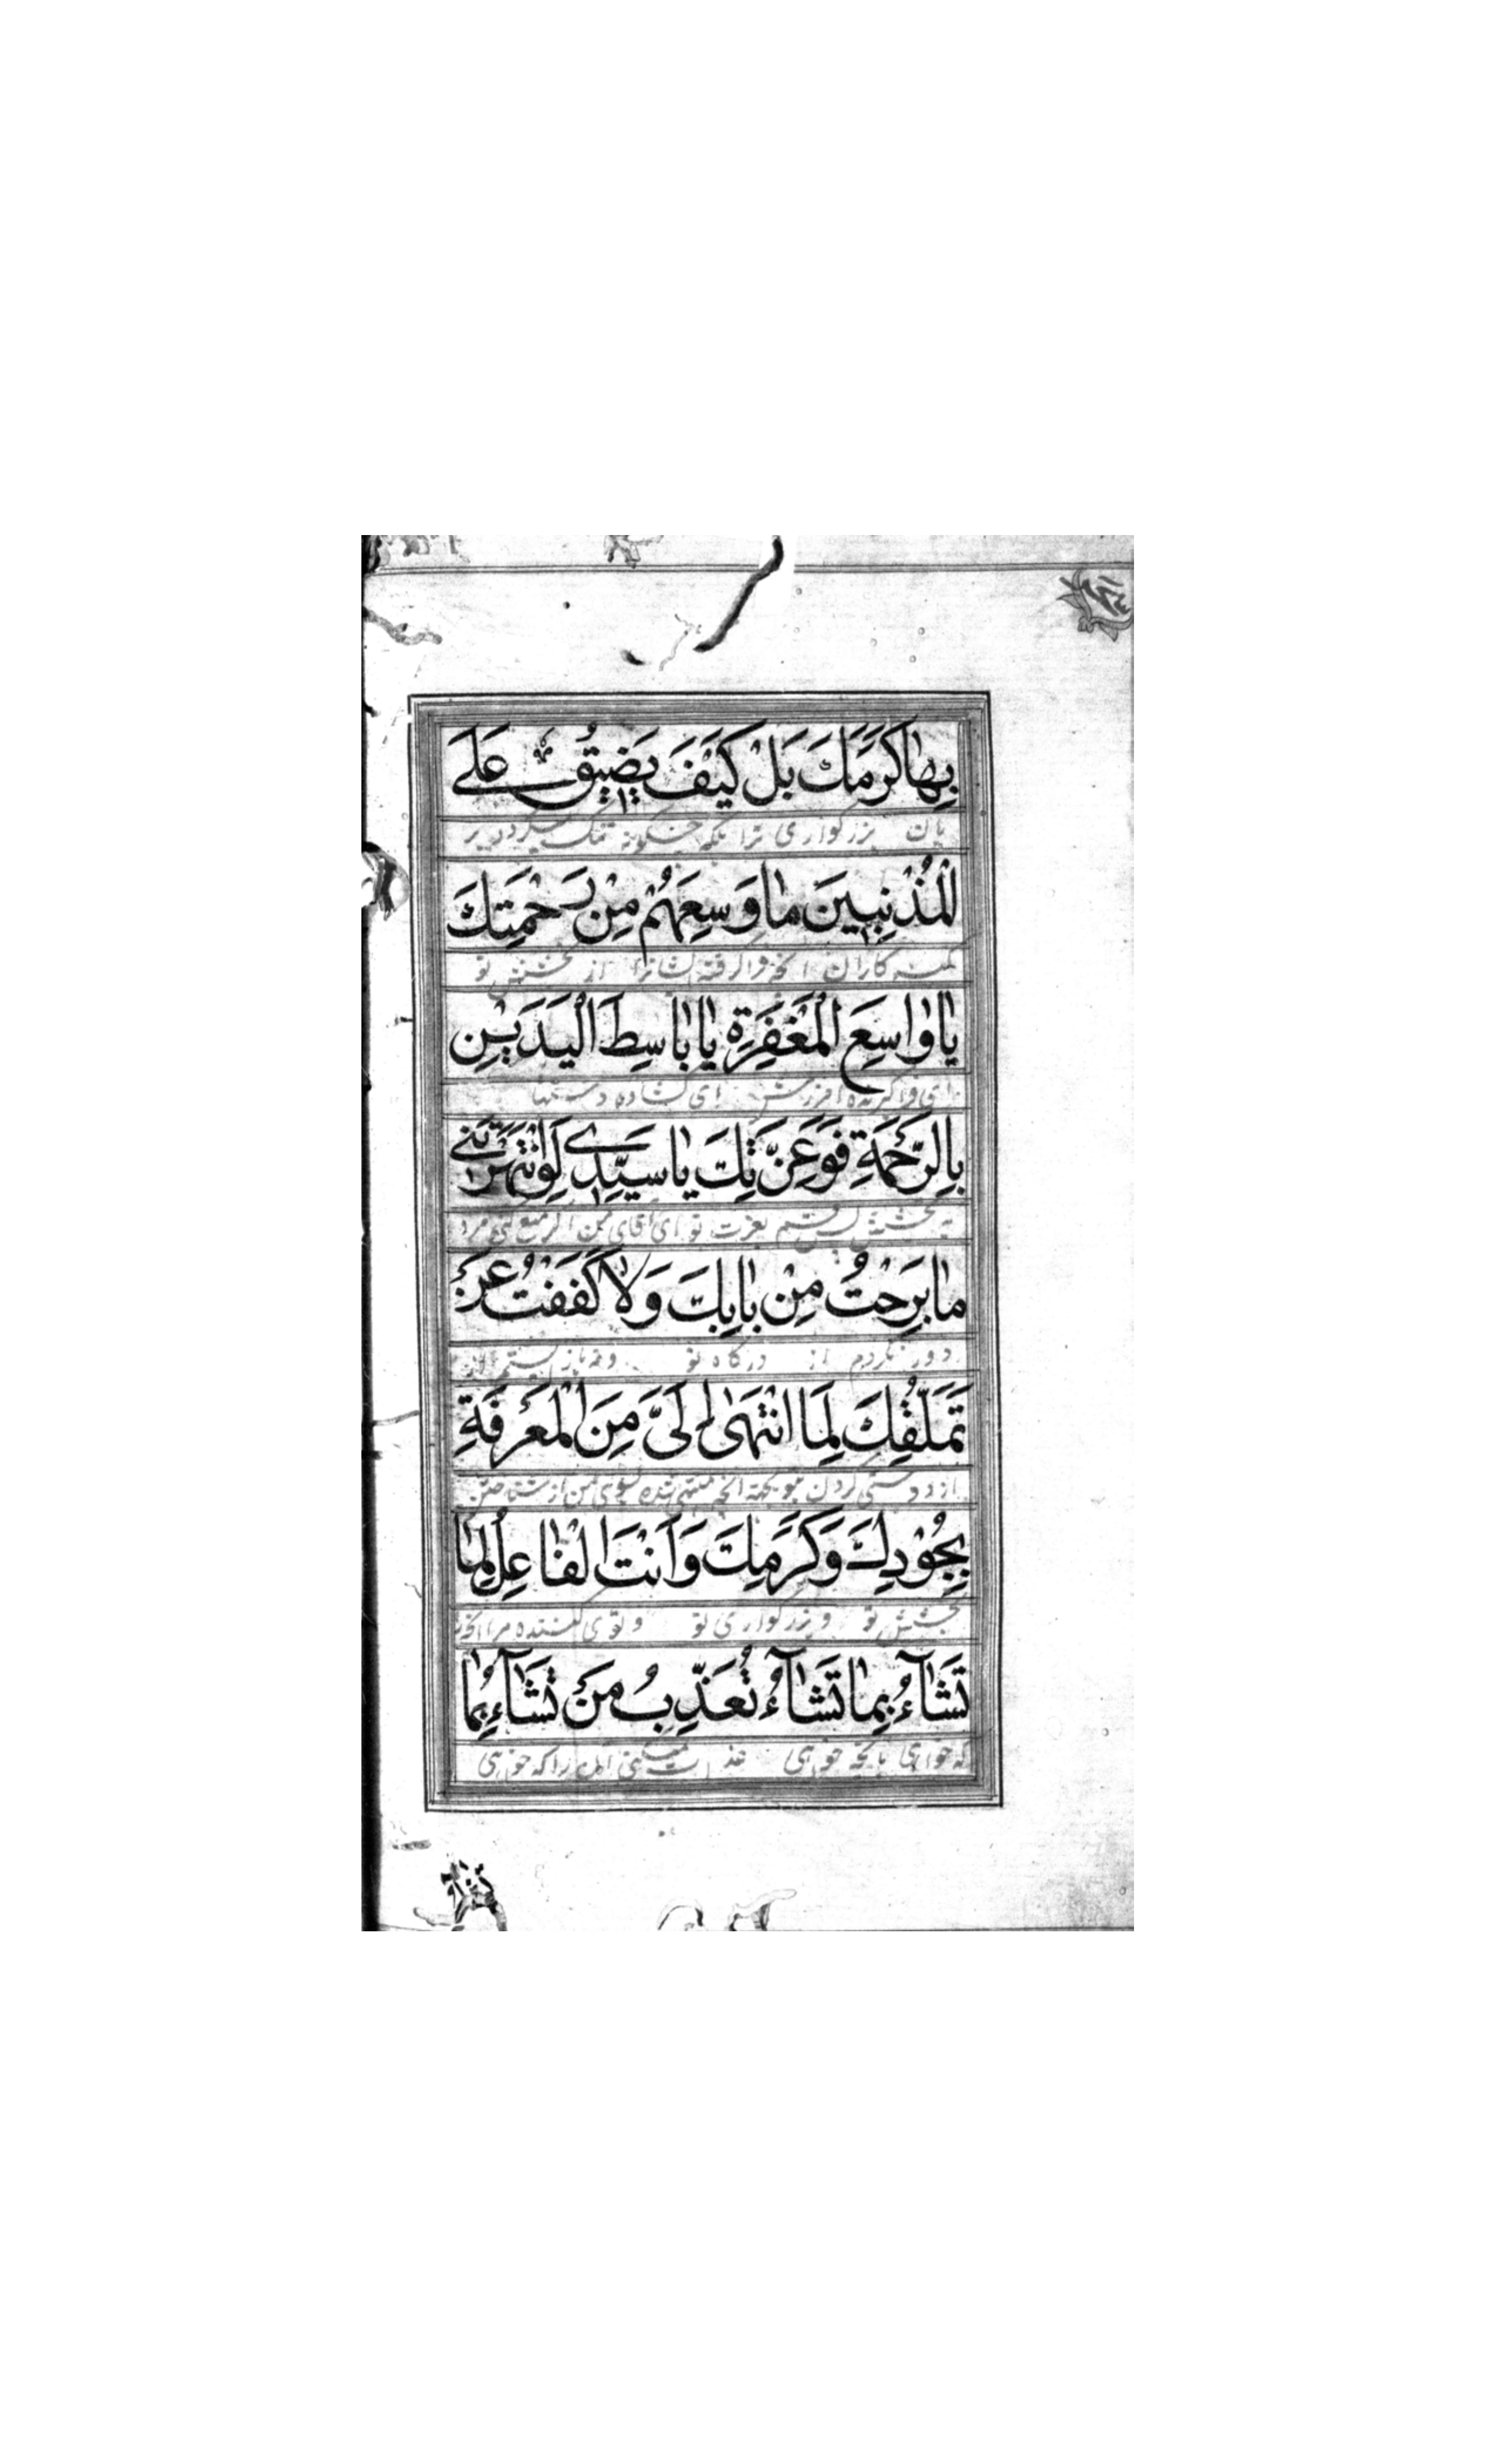 بِهٰا كَرَمَكَ بَلْ كَيْفَ يَضيٖقُ عَلَى
بان بزرگواری ترا بلکه چگونه تنک میکردد بر
الْمُذْنِبينَ مٰا وَسِعَهُمْ مِنْ رَحْمَتِكَ
کنه کاران انچه فرا گرفته ایشانرا از بخشش تو
يٰا وٰاسِعَ الْمَغْفِرَةِ يٰا بٰاسِطَ الْيَدَيْنِ
ای فراگیرنده امرزش ای کشاده دستها
بِالرَّحْمَةِ فَوَعِزَّتِكَ يٰا سَيِّدي لَوِ انْتَهَرْتَني
به بخشش پس قسم بعزت تو ای اقای من اگر منع کنی مرا
مٰا بَرِحْتُ مِنْ بٰابِكَ وَلٰا كَفَفْتُ عَنْ
دور نکردم از درکاه تو و نه باز ایستم
تَمَلُّقِكَ لِمَا انْتَهىٰ اِلَيَّ مِنَ الْمَعْرِفَةِ
از دوستی کردن بتو بجهة انچه منتهی شده بسوی من از شناختن
بِجُوْدِكَ وَكَرَمِكَ وَاَنْتَ الْفٰاعِلُ لِمٰا
بخشش تو و بزرگواری تو و توی کننده مر انچه
تَشٰآءُ بِمٰا تَشٰآءُ تُعَذِّبُ مَنْ تَشٰآءُ بِمٰا
که خواهی بانچه خواهی عذاب میکنی انرا که خواهی